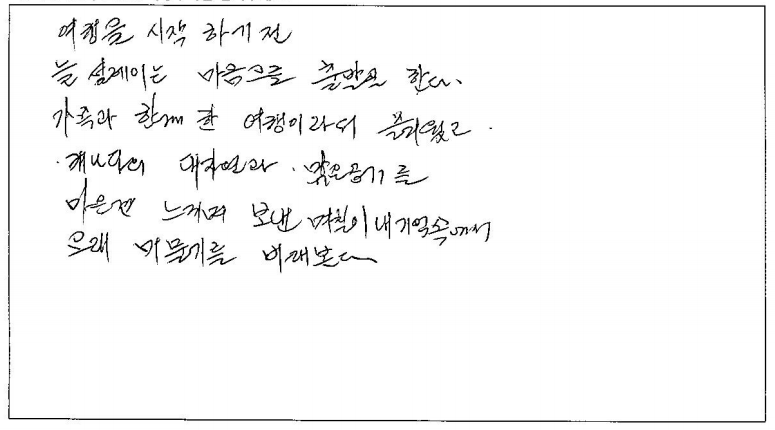 여행을 시작 하기 전
늘 설레이는 마음으로 출발을 한다.
가족과 함께 한 여행이라서 즐거웠고.
캐나다의 대자연과 맑은공기를
마음껏 느끼며 보낸 며칠이 내기억속에서
오래 머물기를 바래본다